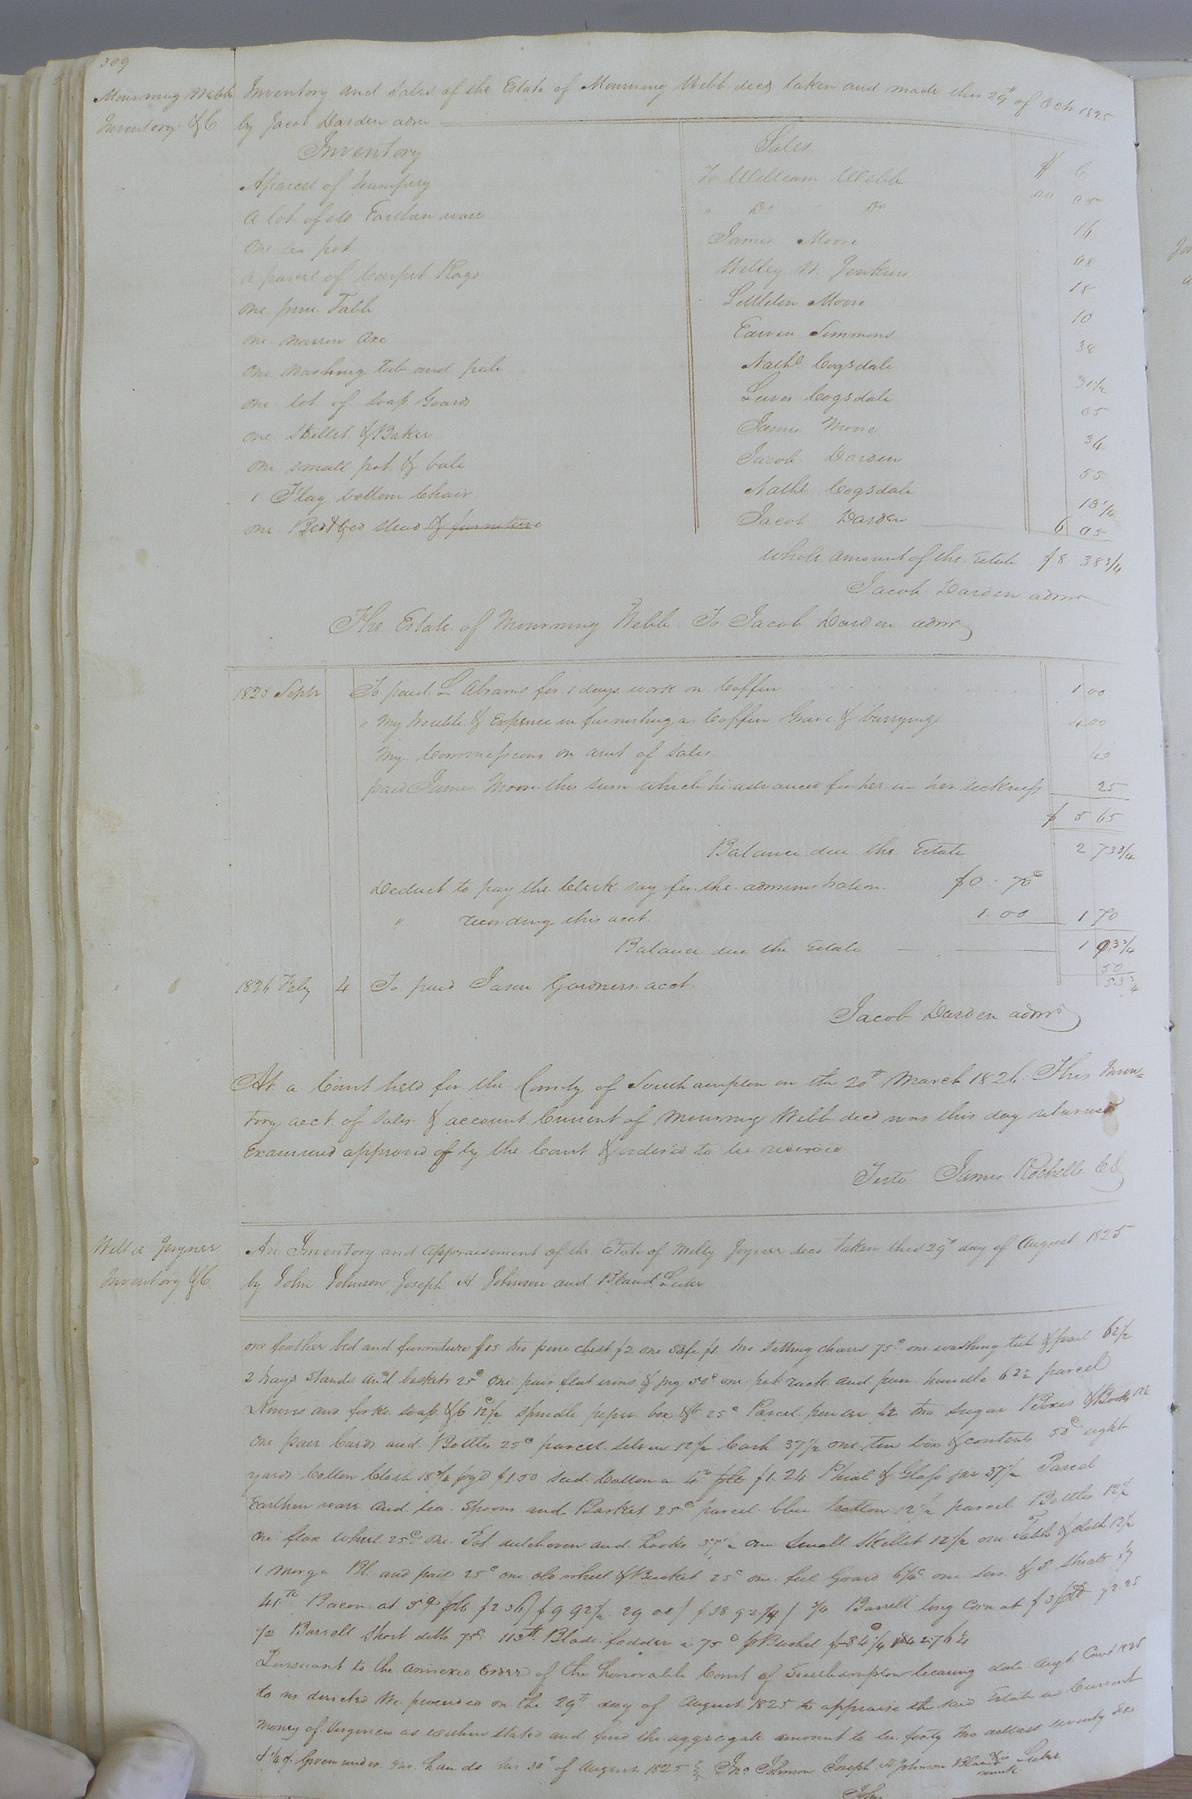 309
Mourning Webb Inventory and Sales of the Estate of Mourning Webb decd taken and made this 29th of Octr 1825
Inventory &C by Jacob Darden admr
Inventory Sales
A parcel of Trumpery To William Webb $ 6
a lot of old Earthen ware " Do Do 05
one tea pot James Moore 16
a parcel of Carpet Rags Willey W. Jenkins 08
one pine Table Littleton Moore 18
one narrow axe Edwin Simmons 10
one washing tub and pale Nathl Cogsdale 38
one lot of soap Goards Lewis Cogsdale 31 1/2
one Skillet & Baker James Moore 05
one small pot & bale Jacob Darden 34
1 Flag bottom Chair Nathl Cogsdale 55
one Bed & Bed stead & furniture Jacob Darden 6 05
whole amount of the Estate $8 38 3/4
Jacob Darden admr
The Estate of Mourning Webb To Jacob Darden admr
1825 Septr To paid L Abrams for 1 days work on Coffin 1 00
" My trouble & Expence in furnishing a Coffin Grave & burrying 4.00
My Commissions on amt of sales 40
paid James Moore this sum which he advanced for her in her sickness 25
$ 5 65
Balance due the Estate 2 73 3/4
Deduct to pay the Clerk say for the administration $0.70c
" recording this acct 1.00 1 70
Balance due the Estate 1 03 3/4
50
1826 Feby 4 To paid Jason Gardners acct 53 3/4
Jacob Darden admr
At a Court held for the County of Southampton on the 20th March 1826 This Inven-
tory acct of Sales & account Current of Mourning Webb decd was this day returned
Examined approved of by the Court & ordered to be recorded
Teste James Rochelle CC
Inventory &C An Inventory and appraisement of the Estate of Milly Joyner decd taken this 29th day of August 1825
by John Johnson Joseph H Johnson and Bland Luter
one feather bed and furniture $15 two pine chest $2 one Safe $1 two sitting chairs 75c one washing tub & pail 62 1/2
2 Stands and baskets 25c one pair flat irons & jug 50c one pot rack and pan handle 62 1/2 parcel
Knives and forks soap &C 12 1/2 spindle peper box &c 25c Parcel pewter $2 two Sugar Boxes & Books 12 1/2
one pair Cards and Bottles 25c parcel 12 1/2 Cash 37 1/2 one tin box & contents 50c eight
yards Cotton Cloth 18 3/4 pyd $1.50 seed Cotton a 4c $1.24 Phial & Glass jar 37 1/2 Parcel
Earthen ware and tea Spoons and Basket 25c parcel blue Cotton 12 1/2 parcel Bottles 12 1/2
one flax wheel 25c one Pot dutchoven and hooks 57 1/2 one Small Skillet 12 1/2 one Table & cloth 12 1/2
1 Bl. and pail 25c one old wheel & Bucket 25c one Goard 6 1/4 one & 5 Shoats
41 lb Bacon at 5 $2 36 $9 92 1/2 Barrell long Corn at $2.25
1/2 Barrell Short ditto 75c 113 lb Blade fodder a 75c
Pursuant to the annexed Order of the Honorable Court of Southampton bearing date Augt Court 1825
to us directed We proceeded on the 29th day of August 1825 to appraise the said Estate in Current
money of Virginia as within stated and find the aggregate amount to be forty two dollars seventy six
Given under our hands this 30th of August 1825 Jno Johnson Joseph H Johnson Bland Luter
mark